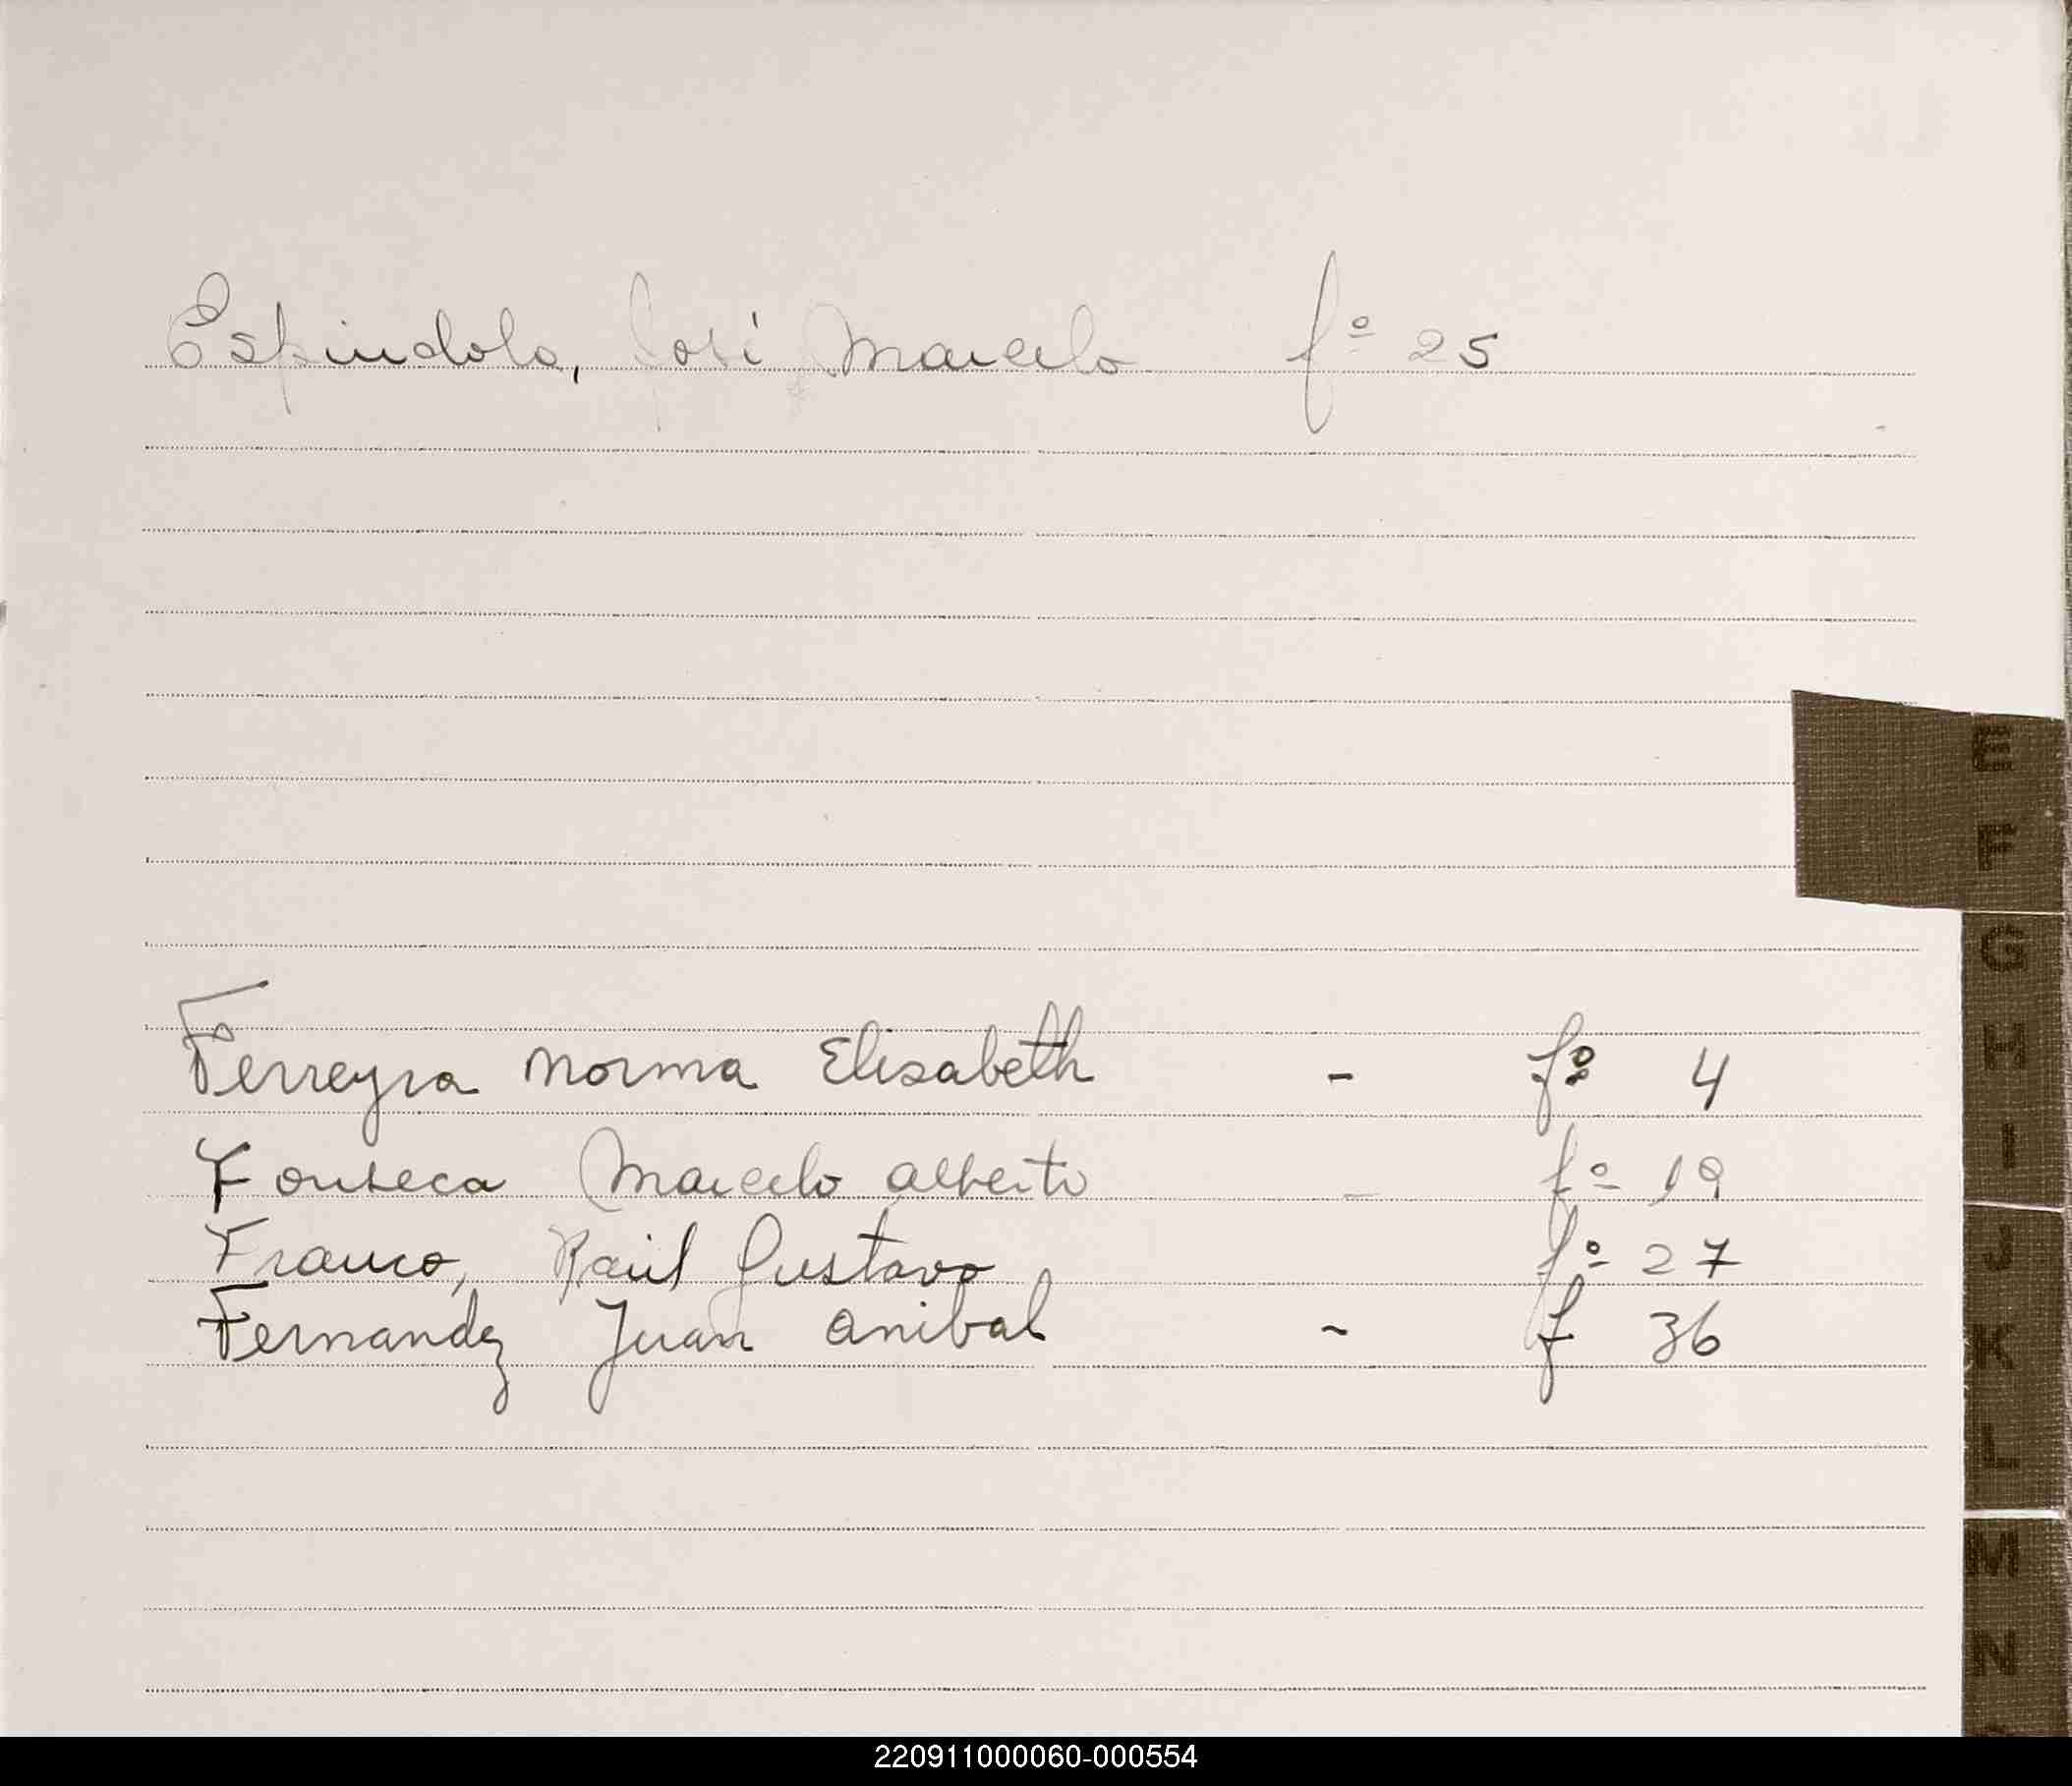 Espindola, José Marcelo fº 25
E
F
G
H
I
J
K
L
M
N
Ferreyra Norma Elisabeth - fº 4
Fonseca Marcelo Alberto - fº 19
Franco, Raúl Gustavo fº 27
Fernandez Juan Anibal - f 36
220911000060-000554